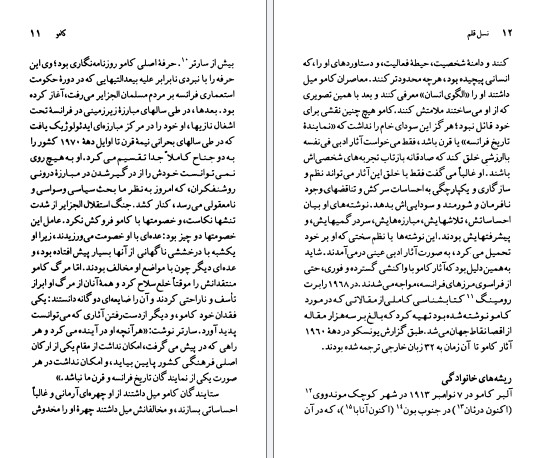 کامو ۱۱
بیش از سارتر۱۰. حرفهٔ اصلی کامو روزنامه‌نگاری بود؛ وی این
حرفه را با نبردی نابرابر علیه بیعدالتیهایی که در دورهٔ حکومت
استعماری فرانسه بر مردم مسلمان الجزایر می‌رفت، آغاز کرده
بود. بعدها، در طی سالهای مبارزهٔ زیرزمینی در فرانسهٔ تحت
اشغال نازیها، او خود را در مرکز مبارزه‌ای ایدئولوژیک یافت
که در طی سالهای بحرانی نیمهٔ قرن تا اوایل دههٔ ۱۹۷۰ کشور را
به دو جناح کاملاً جدا تقسیم می‌کرد. او به هیچ روی
نمی‌توانست خودش را از درگیرشدن در مبارزهٔ درونی
روشنفکران، که امروز به نظر ما بحث سیاسی وسواسی و
نامعقولی می‌رسد، کنار کشد. جنگ استقلال الجزایر از شدت
تنشها نکاست، و خصومتها با کامو فروکش نکرد. عامل این
خصومتها دو چیز بود: عده‌ای با او خصومت می‌ورزیدند، زیرا او
یکشبه با درخششی ناگهانی از آنها بسیار پیش افتاده بود، و
عده‌ای دیگر چون با مواضع او مخالف بودند. امّا مرگ کامو
منتقدانش را موقتاً خلع سلاح کرد و همهٔ آنان از مرگ او ابراز
تأسف و ناراحتی کردند و آن را ضایعه‌ای دوگانه دانستند: یکی
فقدان خود کامو، و دیگر ازدست‌رفتن آثاری که می‌توانست
پدید آورد. سارتر نوشت: «هرآنچه او در آینده می‌کرد و هر
راهی که در پیش می‌گرفت، امکان نداشت از مقام یکی از ارکان
اصلی فرهنگی کشور پایین بیاید، و امکان نداشت در هر
صورت یکی از نمایندگان تاریخ فرانسه و قرن ما نباشد.»
ستایندگان کامو میل داشتند از او چهره‌ای آرمانی و غالباً
احساساتی بسازند، و مخالفانش میل داشتند چهرهٔ او را مخدوش
۱۲ نسل قلم
کنند و دامنهٔ شخصیت، حیطهٔ فعالیت، و دستاوردهای او را، که
انسانی پیچیده بود، هرچه محدودتر کنند. معاصران کامو میل
داشتند او را «الگوی انسان» معرفی کنند و بعد با همین تصویری
که از او می‌ساختند ملامتش کنند. کامو هیچ چنین نقشی برای
خود قائل نبود؛ هرگز این سودای خام را نداشت که «نمایندهٔ
تاریخ فرانسه» یا قرن باشد، فقط می‌خواست آثار ادبی فی‌نفسه
باارزشی خلق کند که صادقانه بازتاب تجربه‌های شخصی‌اش
باشند. او غالباً می‌گفت فقط با خلق این آثار می‌تواند نظم و
سازگاری و یکپارچگی به احساسات سرکش و تناقضهای وجود
نافرمان و شورمند و سودایی‌اش بدهد. نوشته‌های او بیان
احساساتش، تلاشهایش، مبارزه‌هایش، سردرگمیهایش، و
پیشرفتهایش بودند. این نوشته‌ها با نظم سختی که او بر خود
تحمیل می‌کرد، به صورت آثار ادبی عینی درمی‌آمدند. شاید
به همین دلیل بود که آثار کامو با واکنشی گسترده و فوری، حتی
از فراسوی مرزهای فرانسه، مواجه می‌شدند. در ۱۹۶۸ رابرت
رومینگ۱۱ کتابشناسی کاملی از مقالاتی که در مورد
کامو نوشته شده بود تهیه کرد که بالغ بر سه هزار مقاله
از اقصا نقاط جهان می‌شد. طبق گزارش یونسکو در دههٔ ۱۹۶۰
آثار کامو تا آن زمان به ۳۲ زبان خارجی ترجمه شده بودند.
ریشه‌های خانوادگی
آلبر کامو در ۷ نوامبر ۱۹۱۳ در شهر کوچک موندووی۱۲
(اکنون درئان۱۳) در جنوب بون۱۴ (اکنون آنابا۱۵)، که در آن